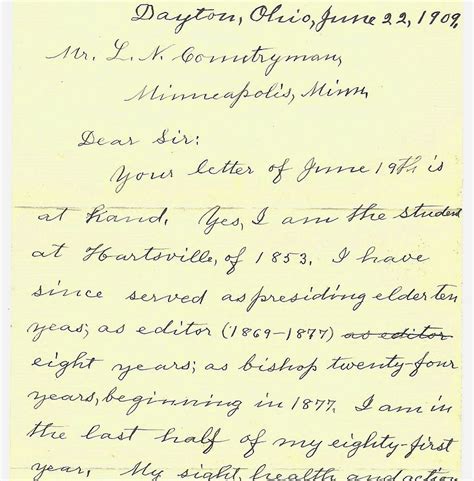 Dayton, Ohio, June 22, 1909.
Mr. L. N. Countryman,
Minneapolis, Minn.
Dear Sir:
Your letter of June 19th is
at hand. Yes, I am the student
at Hartsville, of 1853. I have
since served as presiding elder ten
yeas; as editor (1869-1877) as editor
eight years; as bishop twenty-four
years, beginning in 1877. I am in
the last half of my eighty-first
year. My sight, health and action